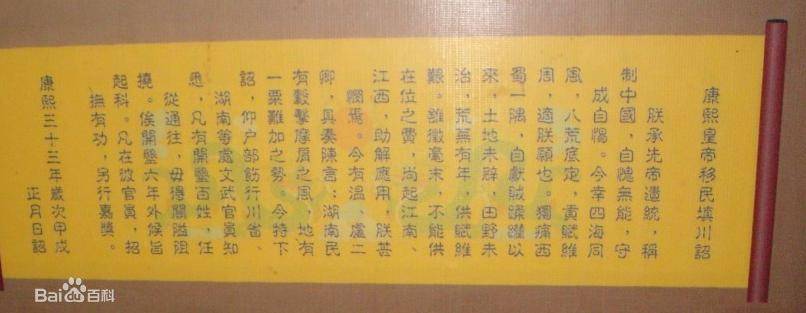 康熙皇帝移民填川詔
朕承先帝遺統，稱
制中國，自愧無能，守
成自惕。今幸四海同
風，八荒底定，貢賦維
周，適朕願也。獨痛西
蜀一隅，自獻賊蹂躪以
來，土地未辟，田野未
治，荒蕪有年，供賦維
艱。雖徵毫末，不能供
在位之費，尚起江南、
江西，助解應用，朕甚
憫焉。今有溫、盧二
卿，具奏陳言：湖南民
有轂擊摩肩之風，地有
一粟難加之勢。今特下
詔，仰户部飭行川省、
湖南等處文武官員知
悉，凡有開墾百姓，任
從通往，毋得關隘阻
撓。俟開墾六年外候旨
起科。凡在彼官員，招
撫有功，另行嘉獎。
康熙三十三年歲次甲戌
正月日詔
Bai百科